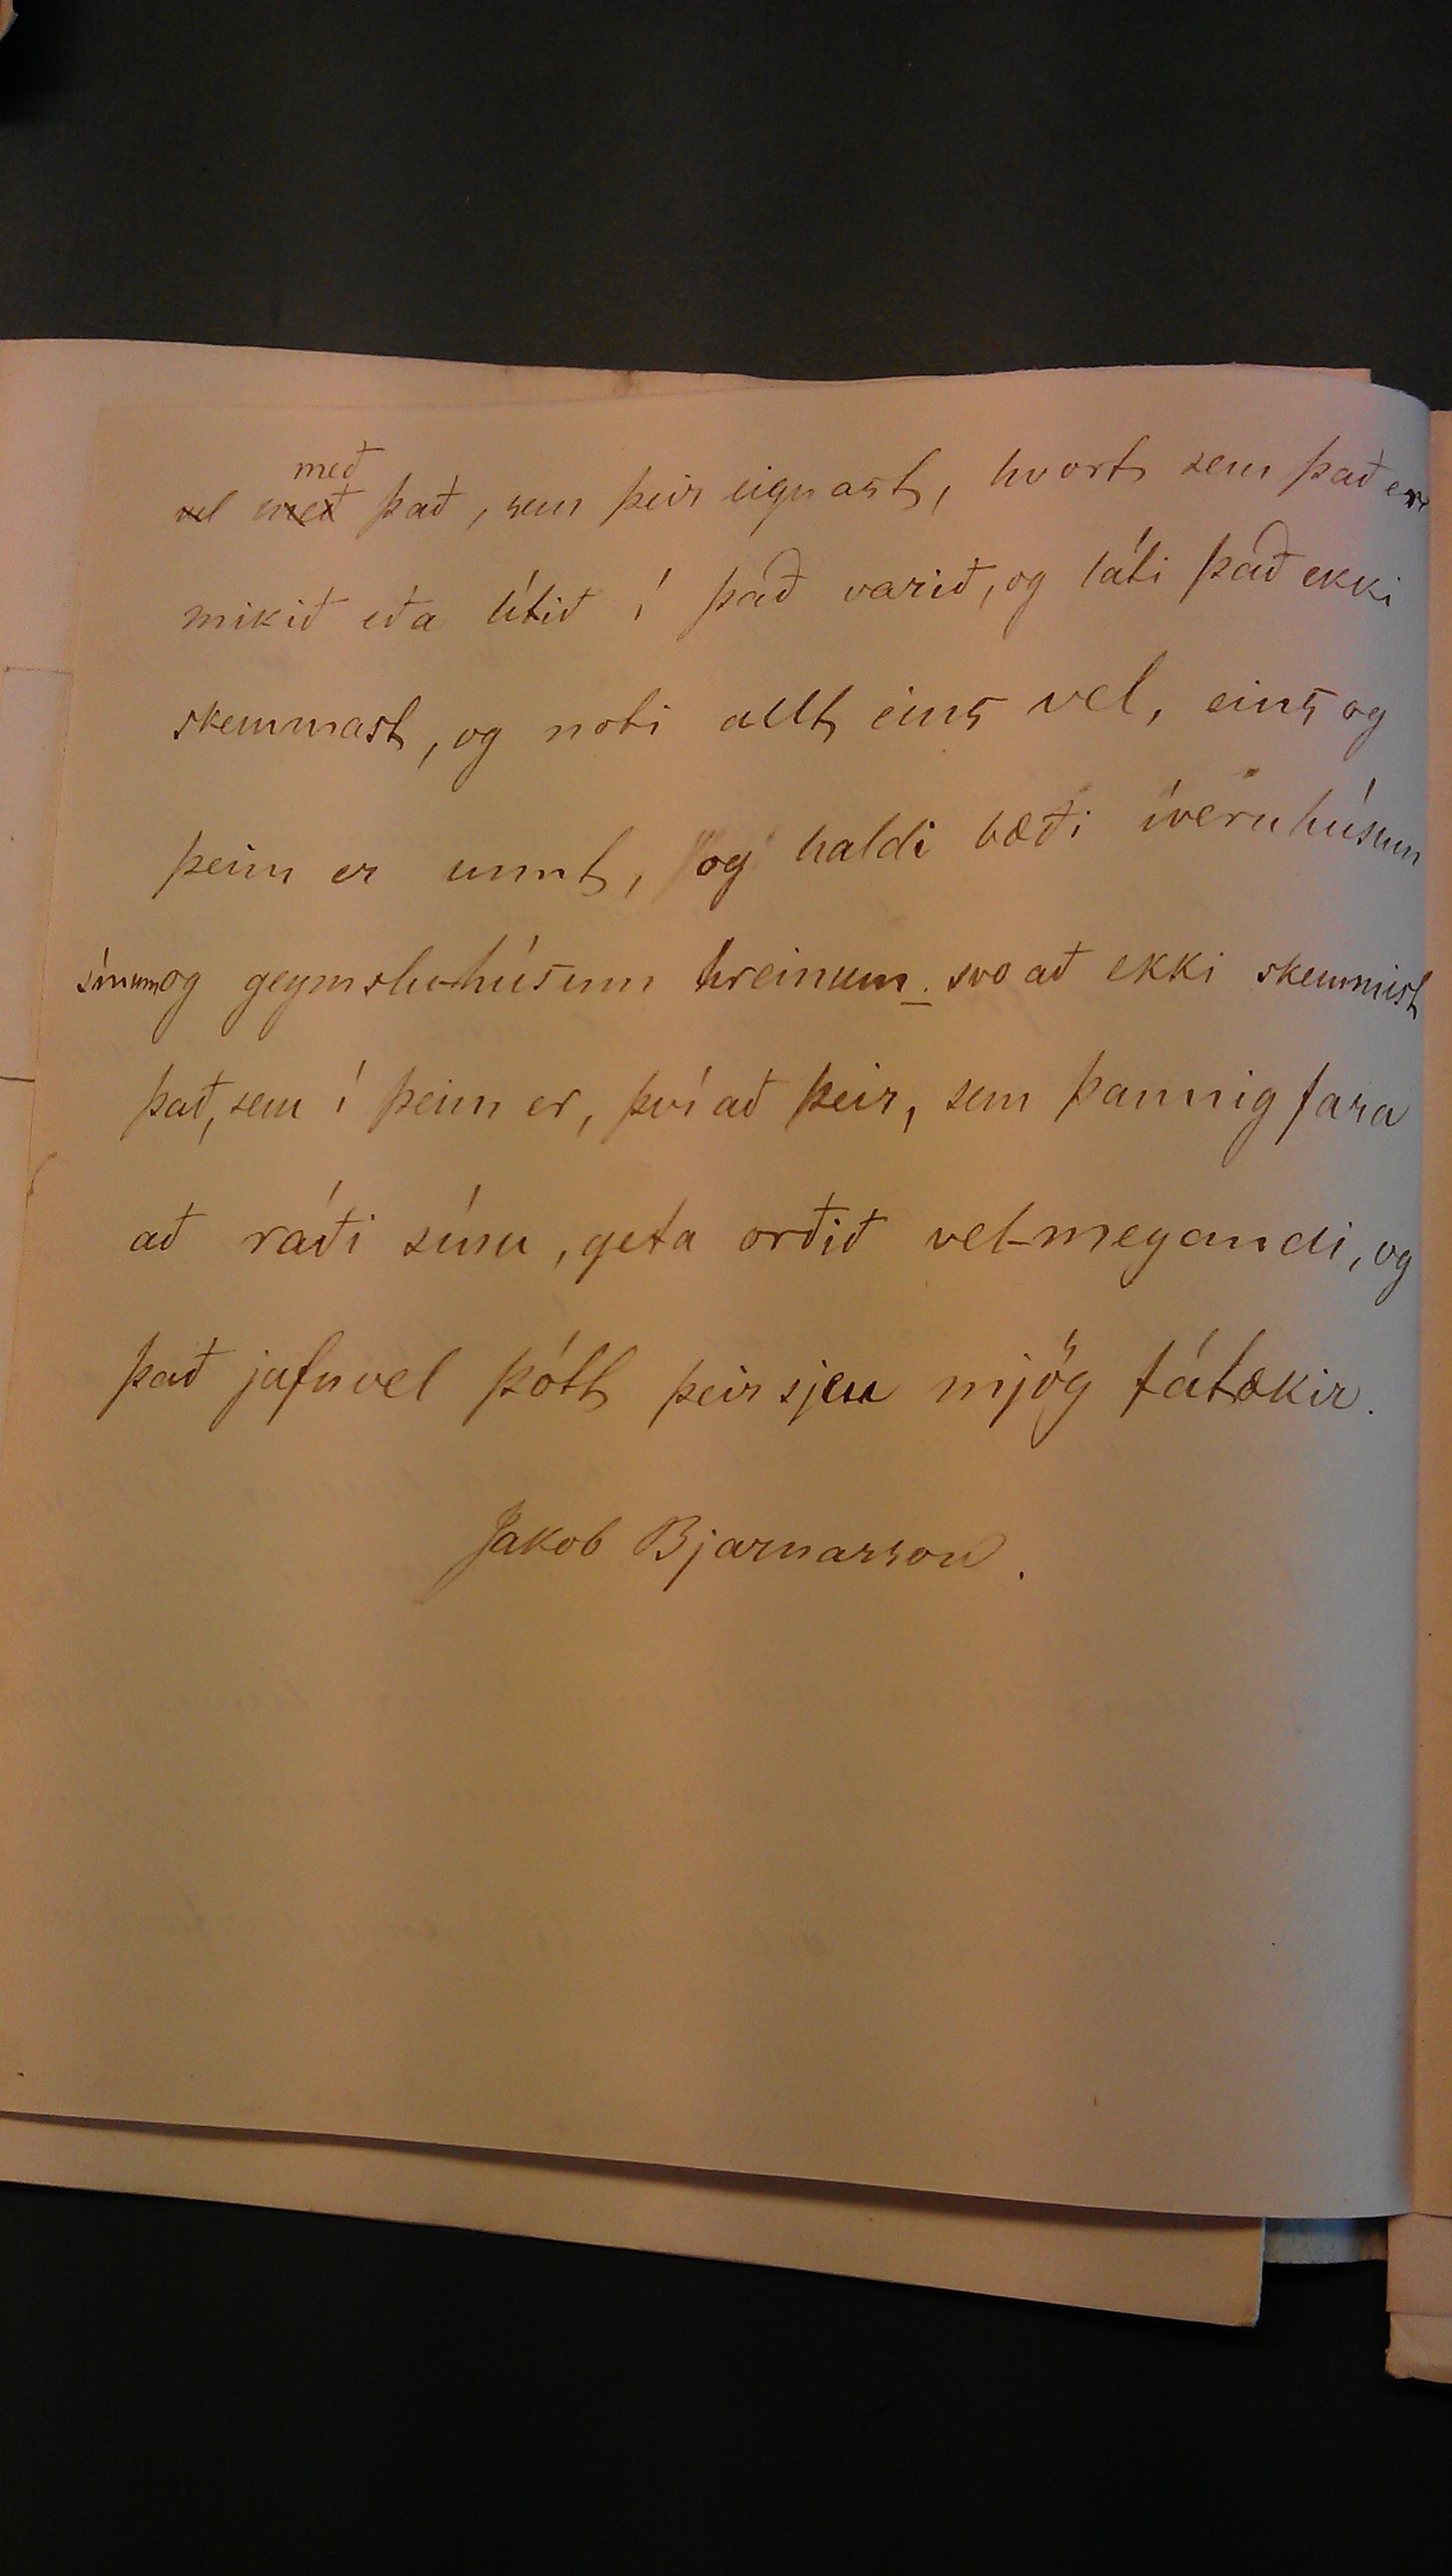 með
vel með það, sem þeir eignast, hvort sem það er
mikið eða lítið í það varið, og láti það ekki
skemmast, og noti allt eins vel, eins og
þeim er unnt, og haldi bæði íveruhúsum
sínum og geymslu-húsum hreinum. svo að ekki skemmist
það, sem í þeim er, því að þeir, sem þannig fara
að ráði sínu, geta orðið vel-megandi, og
það jafnvel þótt þeir sjeu mjög fátækir.
Jakob Bjarnarson.